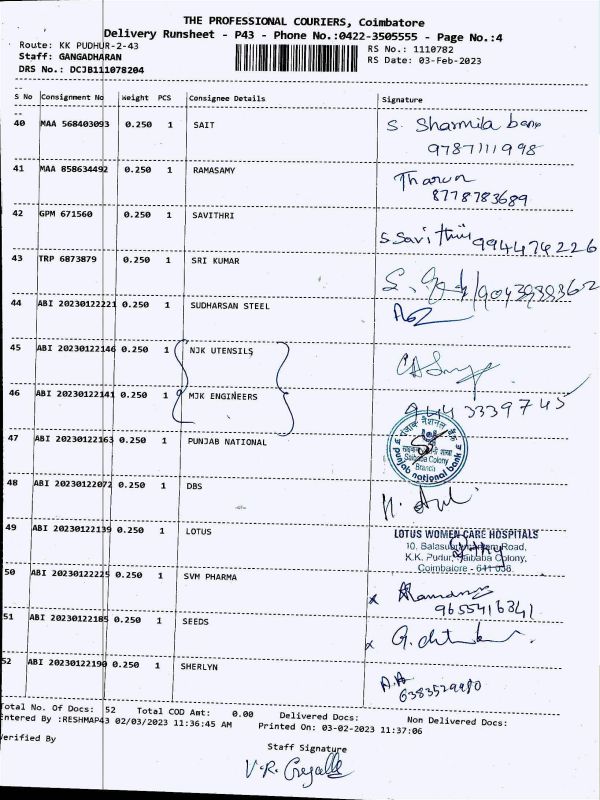 THE PROFESSIONAL COURIERS, Coimbatore
Delivery Runsheet - P43 - Phone No.:0422-3505555 - Page No.:4
Route: KK PUDHUR-2-43 RS No.: 1110782
Staff: GANGADHARAN RS Date: 03-Feb-2023
DRS No.: DCJB111078204
S No Consignment No Weight PCS Consignee Details Signature
40 MAA 568403093 0.250 1 SAIT S. Sharmila banu
9787111998
41 MAA 858634492 0.250 1 RAMASAMY Tharun
8778783689
42 GPM 671560 0.250 1 SAVITHRI S.Savithri 9944742226
43 TRP 6873879 0.250 1 SRI KUMAR
44 ABI 20230122221 0.250 1 SUDHARSAN STEEL
45 ABI 20230122146 0.250 1 NJK UTENSILS
46 ABI 20230122141 0.250 1 MJK ENGINEERS 9443339745
47 ABI 20230122163 0.250 1 PUNJAB NATIONAL
पंजाब नैशनल बैंक
Saibaba Colony
Branch
punjab national bank
48 ABI 20230122072 0.250 1 DBS
49 ABI 20230122139 0.250 1 LOTUS LOTUS WOMEN CARE HOSPITALS
10, Road,
K.K. Pudur, Saibaba Colony,
Coimbatore - 641 038.
50 ABI 20230122225 0.250 1 SVM PHARMA x
9655416341
51 ABI 20230122185 0.250 1 SEEDS x
52 ABI 20230122190 0.250 1 SHERLYN A.A
6383529980
Total No. Of Docs: 52 Total COD Amt: 0.00 Delivered Docs: Non Delivered Docs:
Entered By :RESHMAP43 02/03/2023 11:36:45 AM Printed On: 03-02-2023 11:37:06
Verified By
Staff Signature